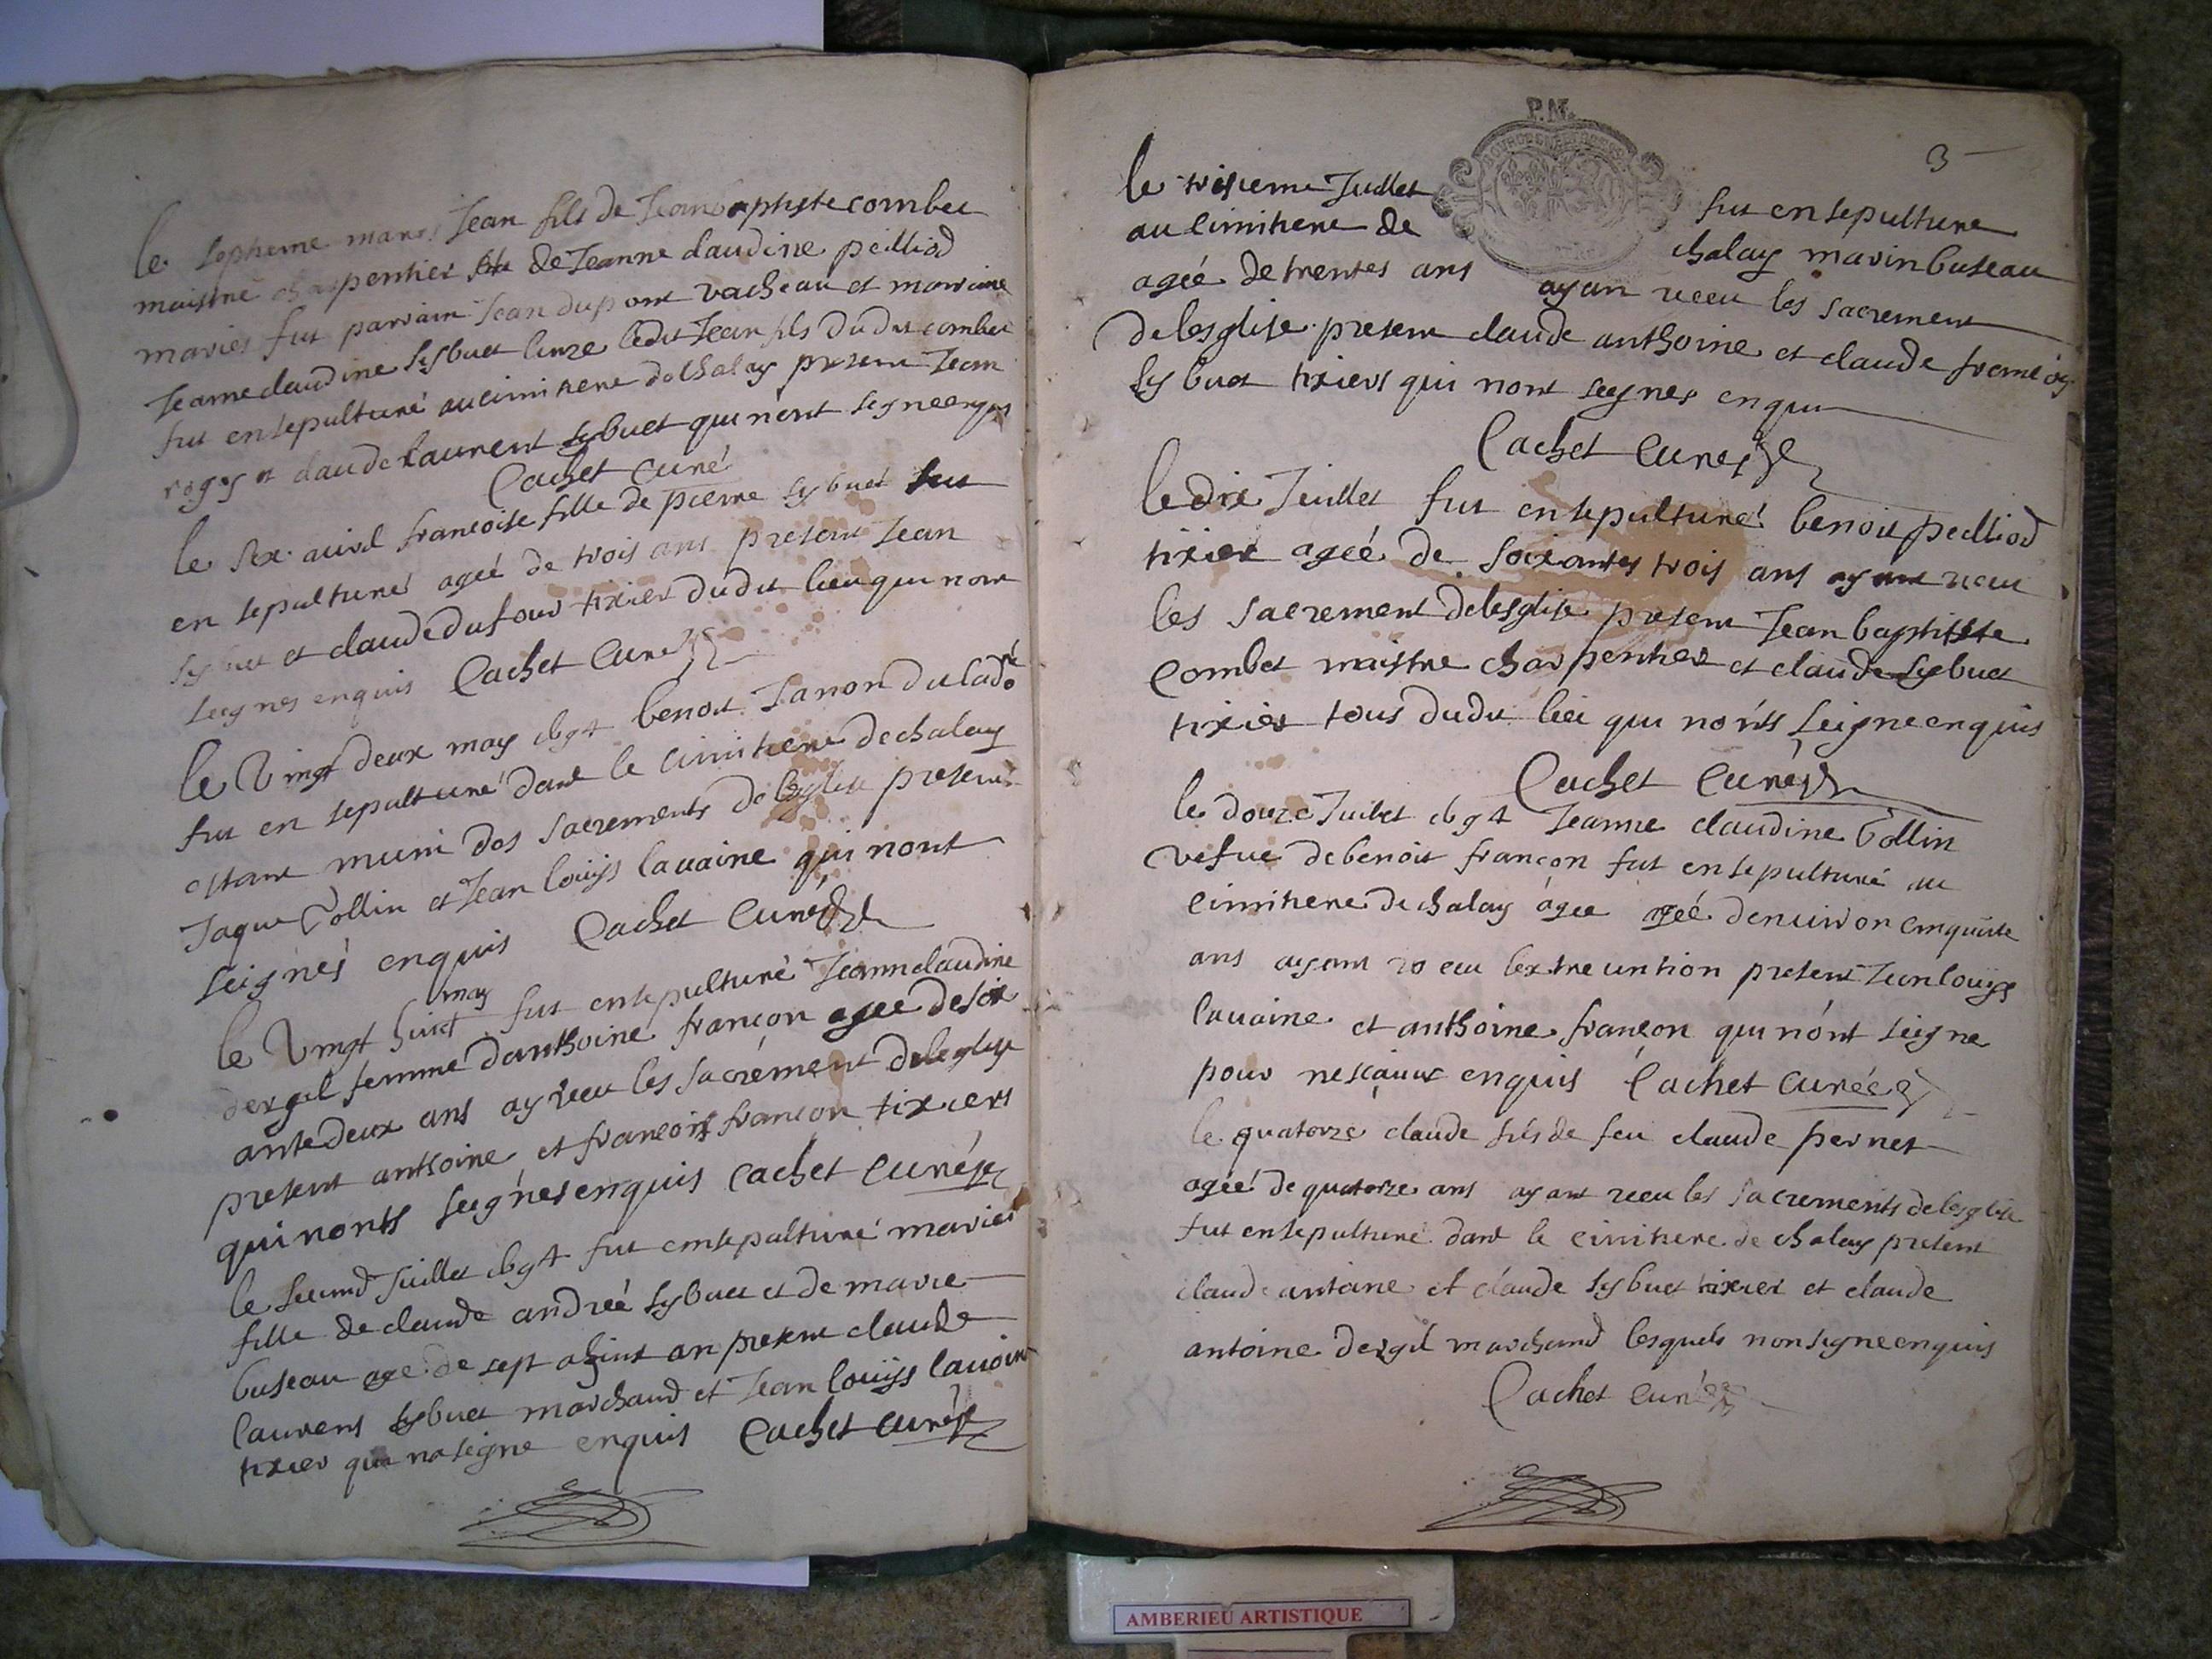 le septieme mars Jean fils de Jean baptiste combet
maistre charpentier de Jeanne claudine peilliod
maries fut parrain Jean dupont vacheau et marraine
Jeanne claudine sybuet ledit Jean fils dudit combet
fut ensepulturé au cimitiere de chaley present Jean
roges et claude laurent sybuet qui nont segne enquis
Cachet curé
le six auril francoise fille de pierre sybuet fut
en sepulturé ageé de trois ans present Jean
sybuet et claude dufour tixier dudit lieu qui nont
seignes enquis Cachet Curé
le Vingt deux may 1694 benoit Janon du
fut en sepulturé dant le cimitiere de chaley
estant muni des sacrements de leglise present
Jaque Collin et Jean louijs lauaine qui nont
seignés enquis Cachet Curé
le Vingt huict may fut ensepulturé Jeanne claudine
dergil femme danthoine francon ageé de soix
ante deux ans ay receu les sacrément deleglise
present anthoine et francois francon tixiers
qui nonts seignes enquis Cachet Curé
le second Juillet 1694 fut ensepulturé marie
fille de claude andreé sybuet et de marie
buseau age de sept a huit an present claude
laurens sybuet marchand et Jean louijs lauaine
tixier qui na seigne enquis Cachet curé
P.M.
3
le troisieme Juillet fut ensepulturé
au cimitiere de chaley marin buseau
ageé de trentes ans ayan receu les sacrement
de lesglise present claude anthoine et claude francois
sybuet tixiers qui nont segnes enquis
Cachet Curé
le dix Juillet fut ensepulturé benoit peilliod
tixier ageé de soixantes trois ans ayant receu
les sacrement delesglise present Jean baptiste
Combet maistre charpentier et claude sybuet
tixier tous dudit lieu qui nonts seigne enquis
Cachet Curé
le douze Juillet 1694 Jeanne claudine Collin
vefue de benoit francon fut ensepulturé au
cimitiere de chaley ageé ageé denuiron cinquante
ans ayant receu lextreuntion present Jean louijs
lauaine et anthoine francon qui nónt seigne
pour nesçauoir enquis Cachet curé
le quatorze claude fils de feu claude pernet
ageé de quatorze ans ayant receu les sacrements delesglise
fut ensepulturé dant le cimitiere de chaley present
claude antoine et claude sybuet tixier et claude
antoine dergil marchand lesquels non signe enquis
Cachet curé
AMBERIEU ARTISTIQUE